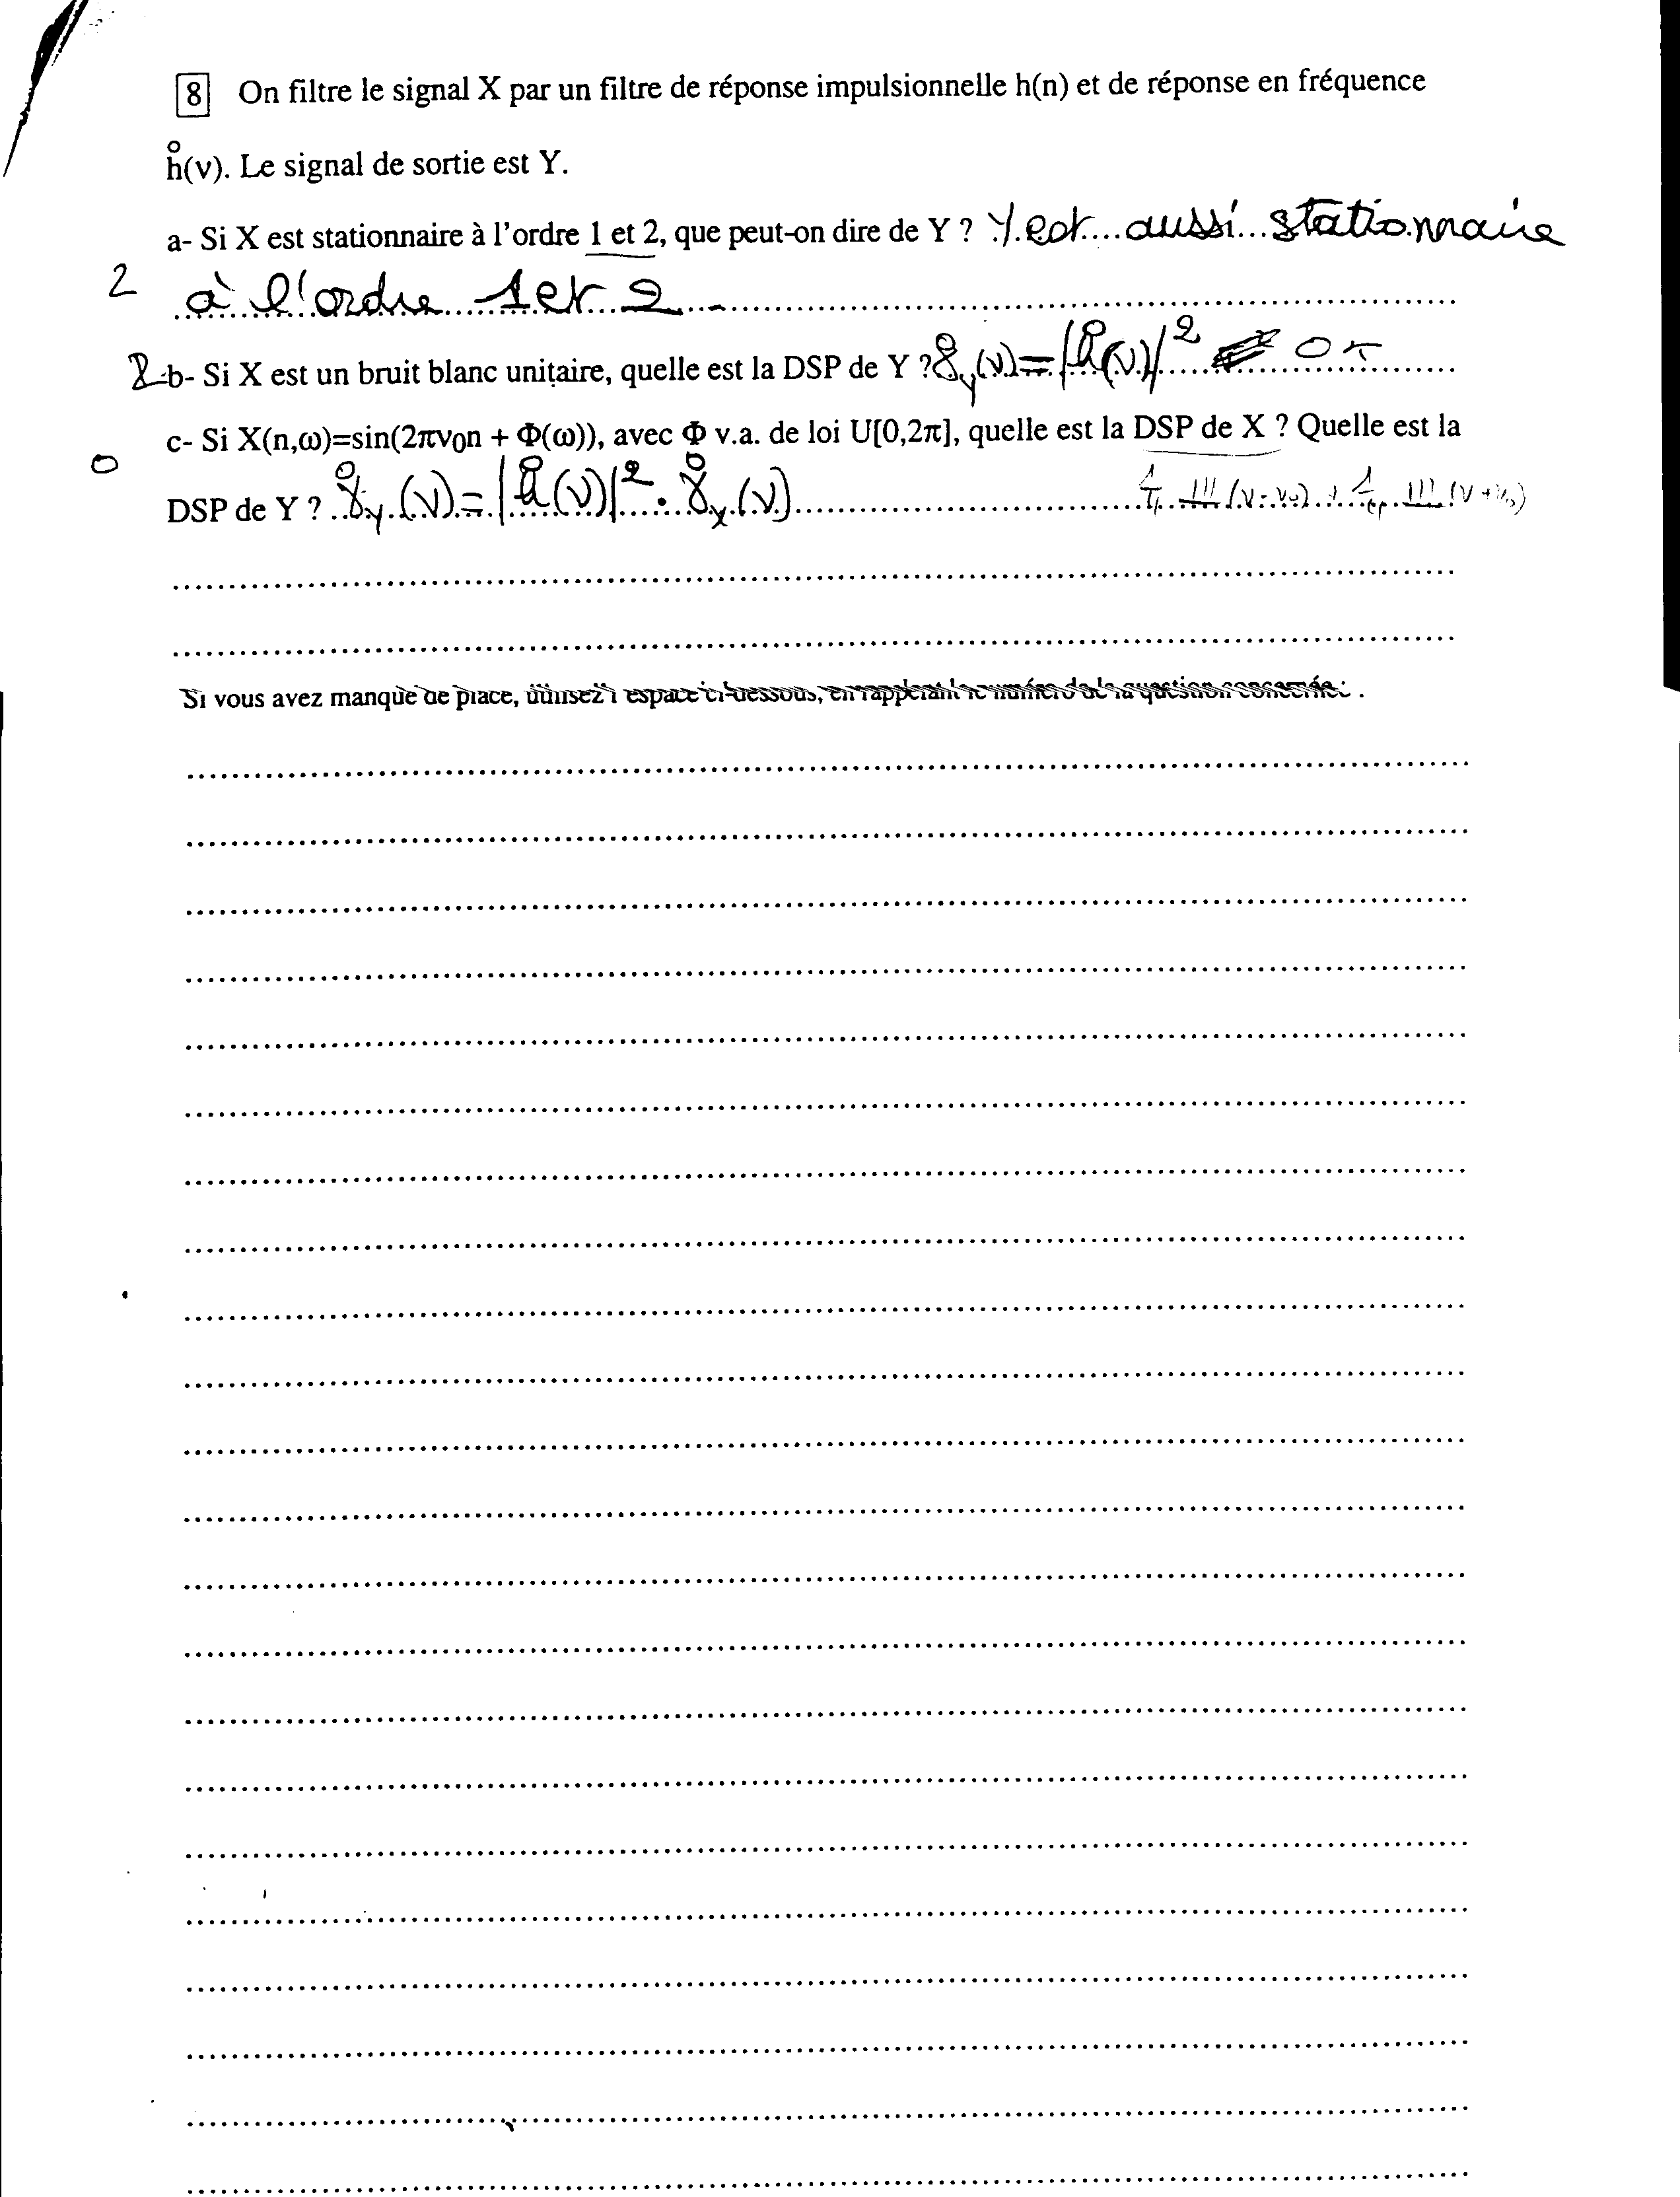 8 On filtre le signal X par un filtre de réponse impulsionnelle h(n) et de réponse en fréquence
h̊(ν). Le signal de sortie est Y.
a- Si X est stationnaire à l'ordre 1 et 2, que peut-on dire de Y ? Y est aussi stationnaire
2 à l'ordre 1 et 2
2 b- Si X est un bruit blanc unitaire, quelle est la DSP de Y ? γ̊y(ν) = |h̊(ν)|²
c- Si X(n,ω)=sin(2πν0n + Φ(ω)), avec Φ v.a. de loi U[0,2π], quelle est la DSP de X ? Quelle est la
0
DSP de Y ? γ̊y(ν) = |h̊(ν)|² . γ̊x(ν)
Si vous avez manqué de place, utilisez l'espace ci-dessous, en rappelant le numéro de la question concernée.